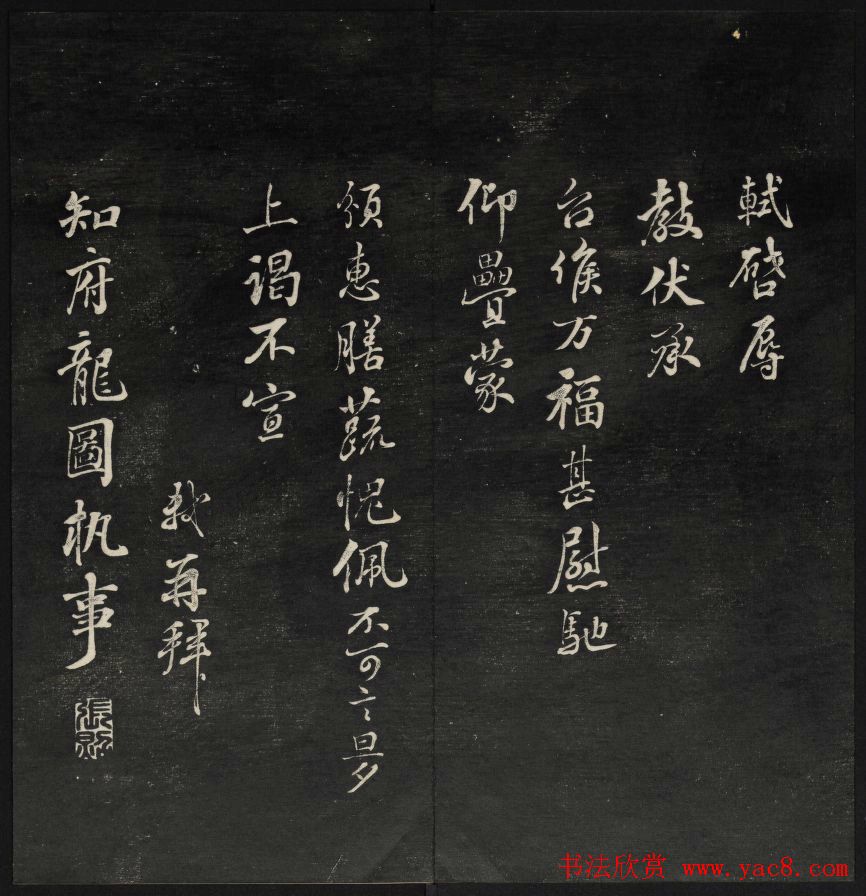 軾啓辱
教伏承
台候万福甚慰馳
仰疊蒙
頒惠膳蔬愧佩不可言旦夕
上謁不宣
軾再拜
知府龍圖執事
书法欣赏 www.yac8.com